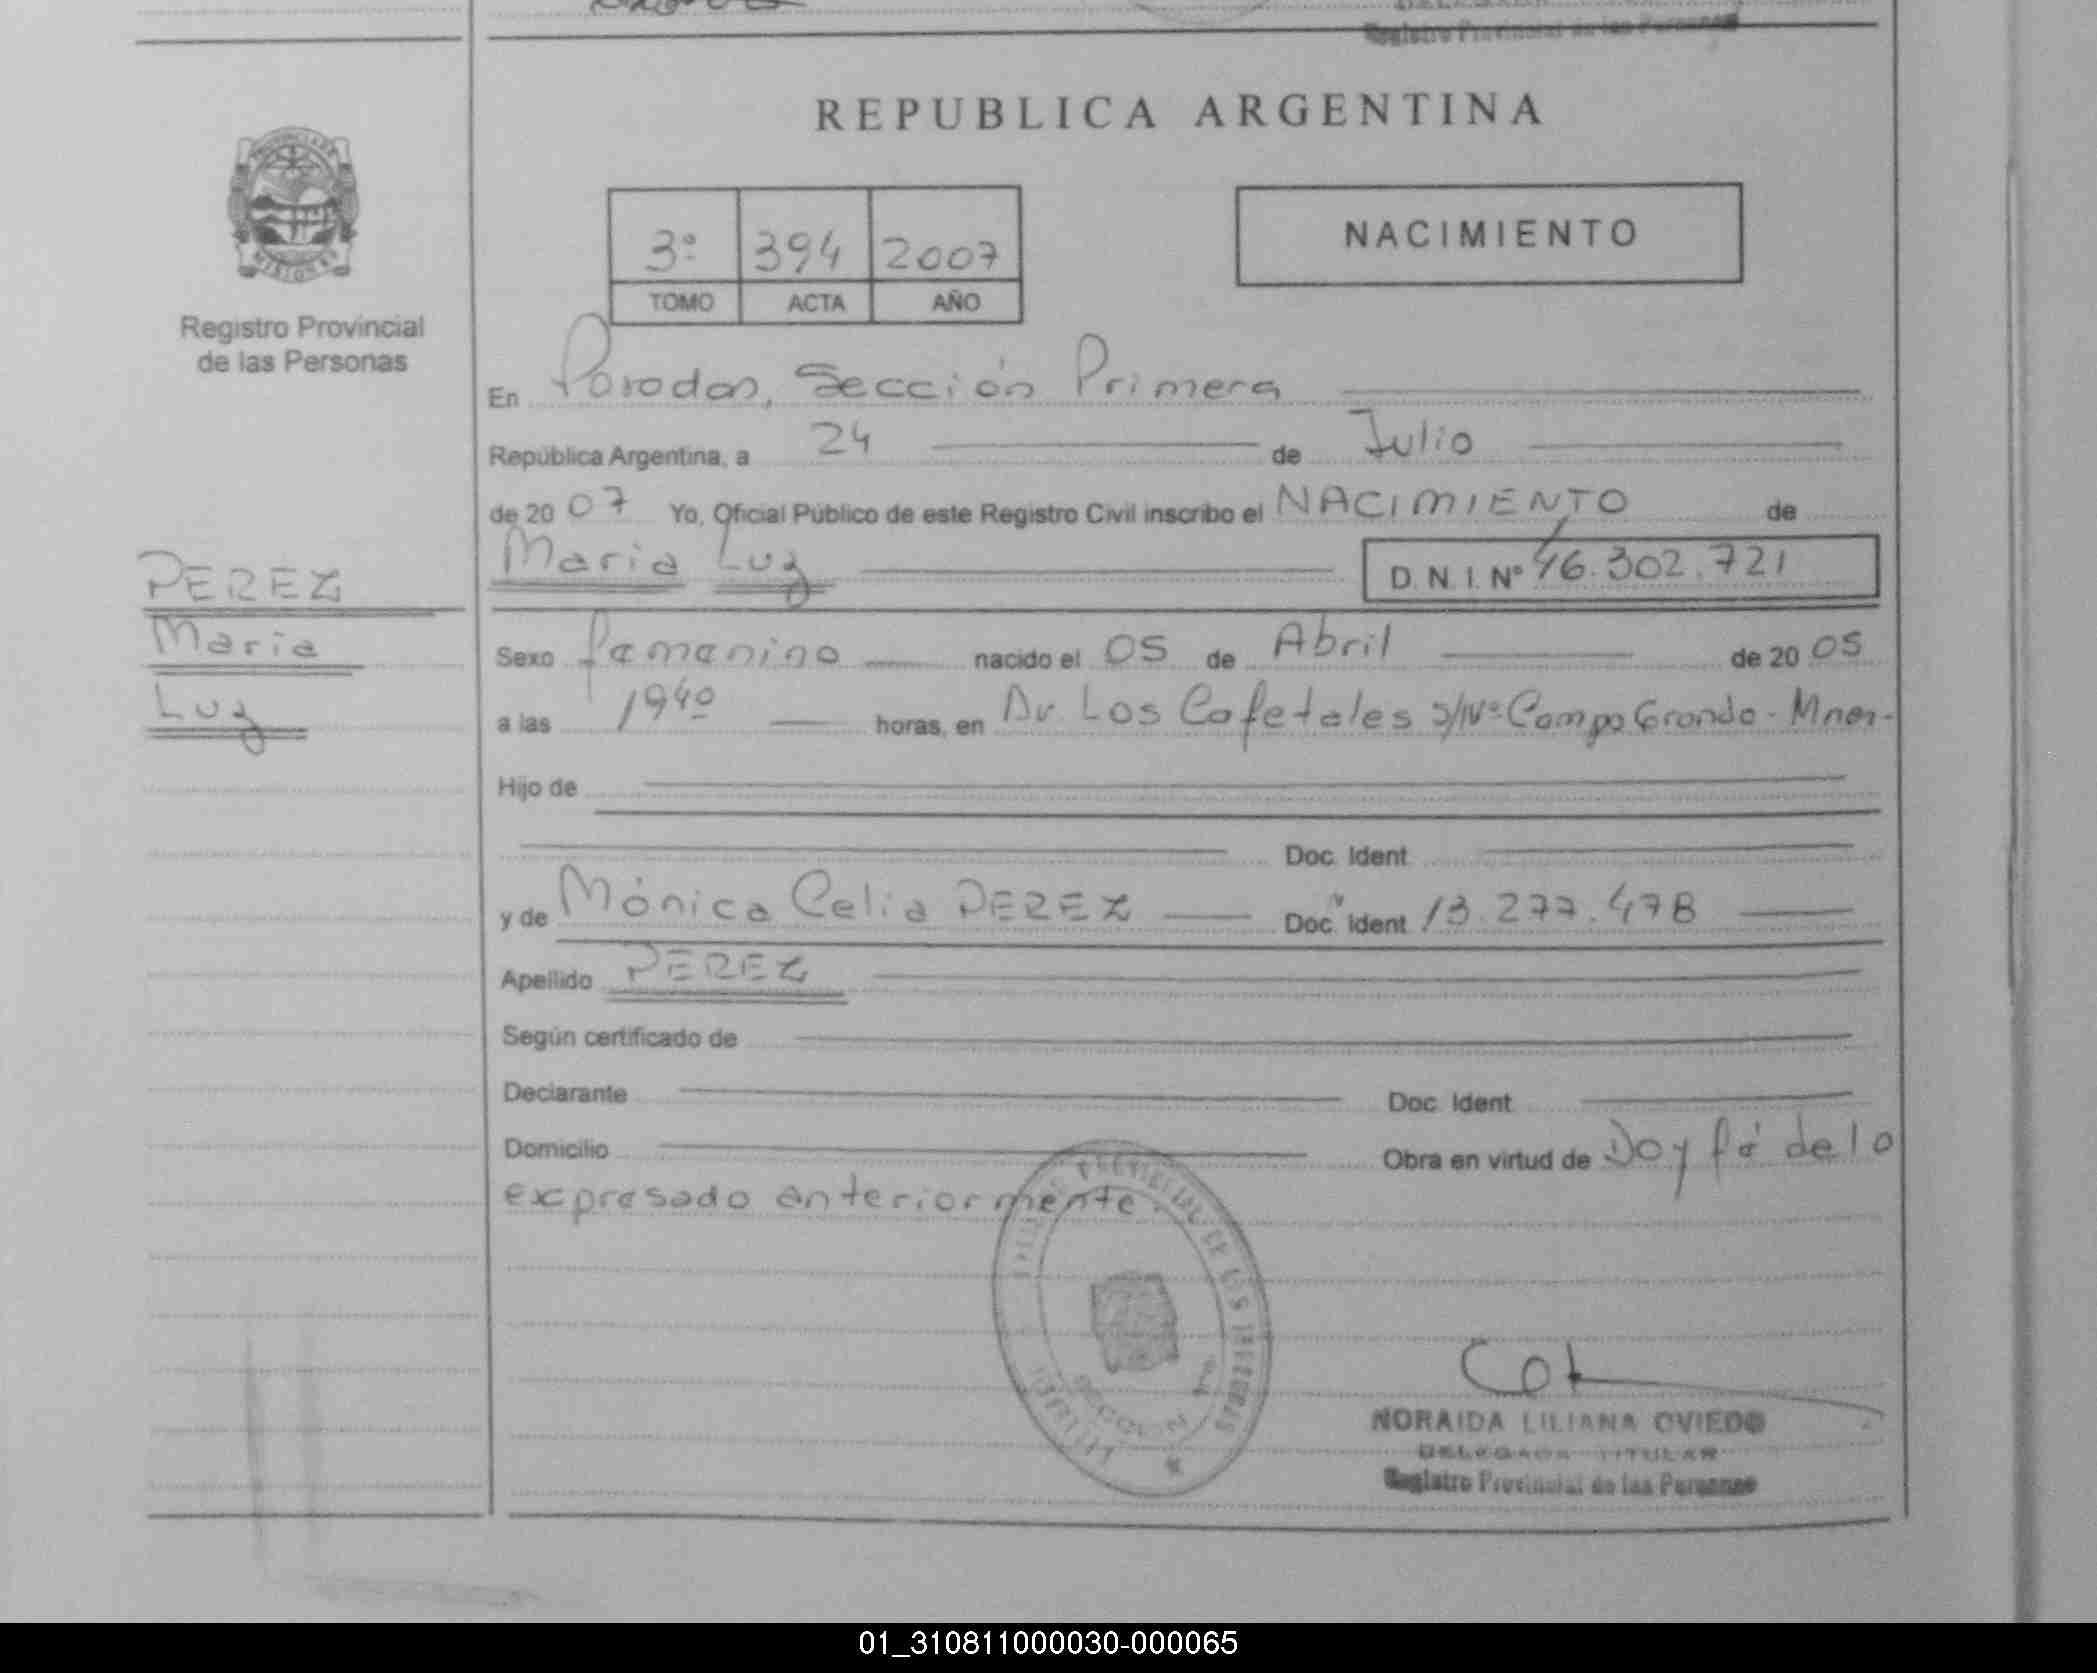 Registro Provincial de las Personas
REPUBLICA ARGENTINA
PROVINCIA DE
MISIONES
Registro Provincial
de las Personas
3º 394 2007
TOMO ACTA AÑO
NACIMIENTO
En Posadas, Sección Primera
República Argentina, a 24 de Julio
de 20 07 Yo, Oficial Público de este Registro Civil inscribo el NACIMIENTO de
Maria Luz D.N.I. Nº 46.302.721
PEREZ
Maria
Luz
Sexo femenino nacido el 05 de Abril de 20 05
a las 19 40 horas, en Av. Los Cafetales s/Nº Campo Grande - Mnes-
Hijo de
Doc. Ident
y de Mónica Celia PEREZ Doc. Ident 13.277.478
Apellido PEREZ
Según certificado de
Declarante Doc. Ident
Domicilio Obra en virtud de Doy fé de lo
expresado anteriormente.
PROVINCIAL DE LAS PERSONAS
SECCION 1ra.
NORAIDA LILIANA OVIEDO
DELEGADA TITULAR
Registro Provincial de las Personas
01_310811000030-000065